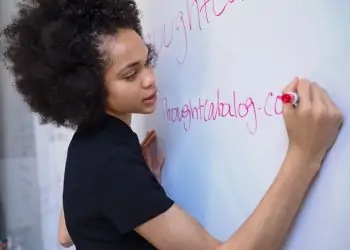 thoughtCo
thoughtcatalog.co